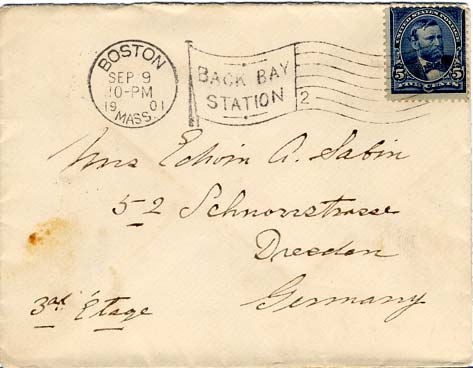 BOSTON
SEP 9
10-PM
19 01
MASS.
BACK BAY
STATION
2
UNITED STATES POSTAGE
5 5
FIVE CENTS
Mrs Edwin A. Sabin
52 Schnorrstrasse
Dresden
Germany
3rd Étage